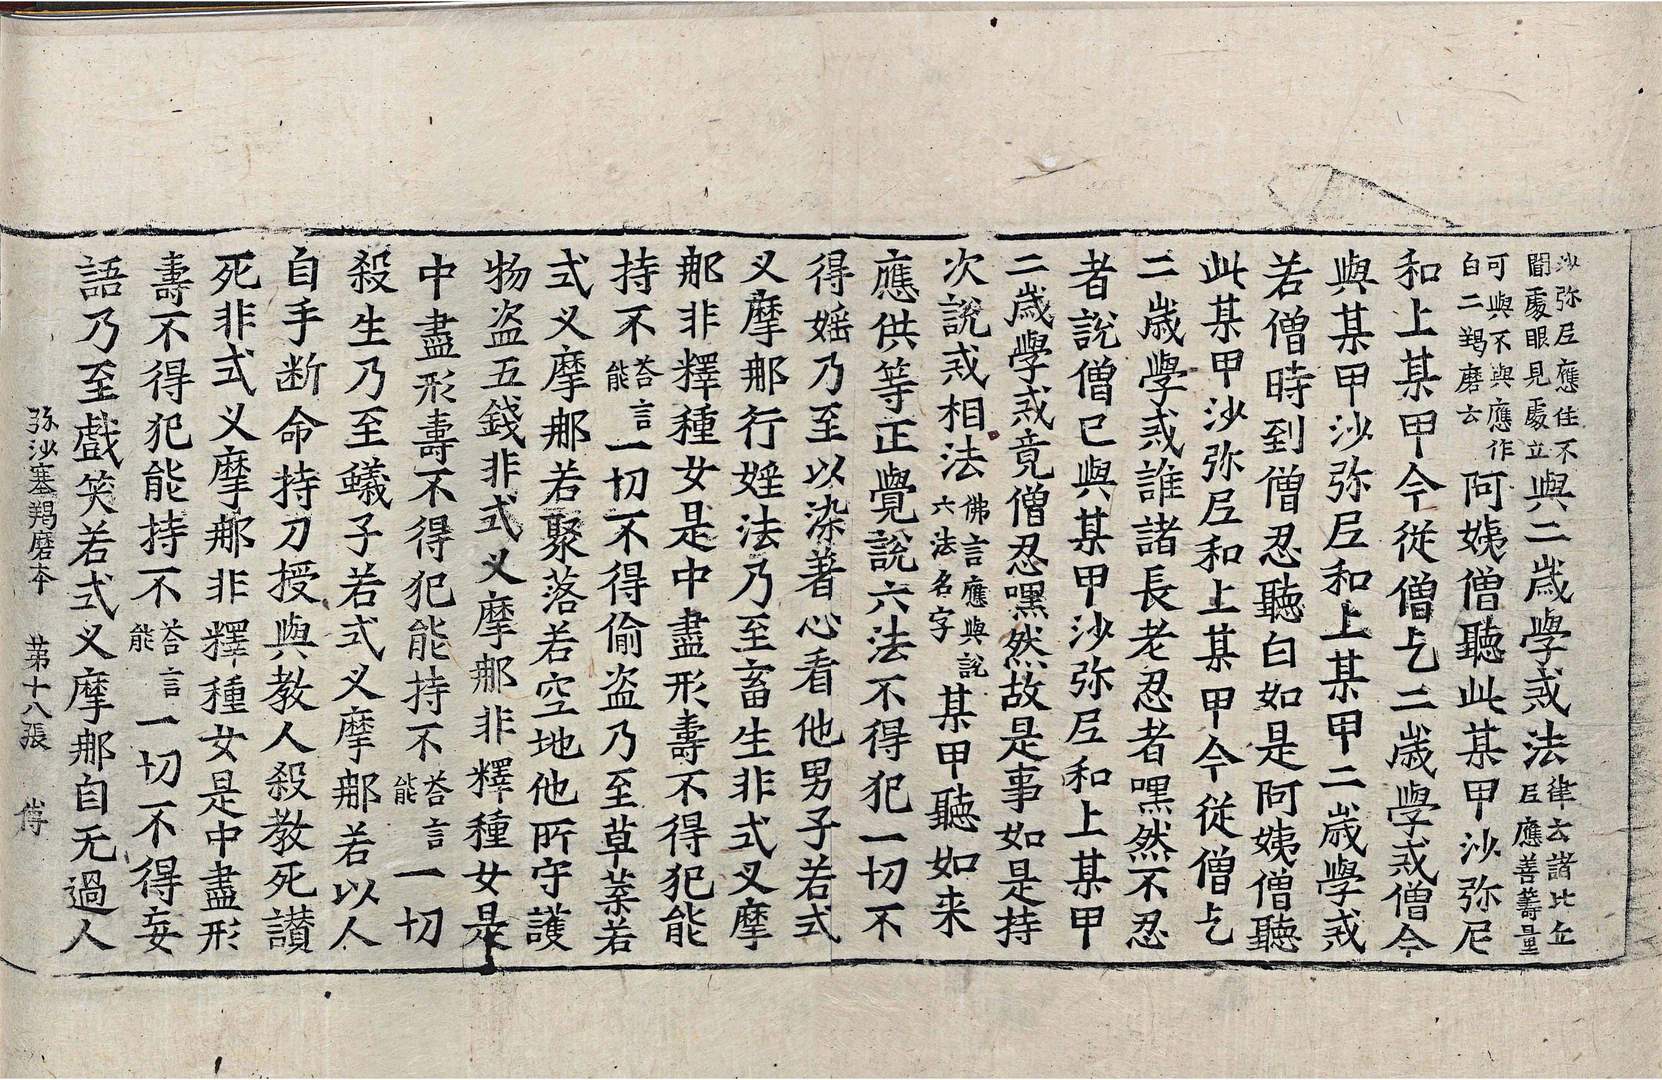 沙弥尼應住不聞處眼見處立與二歲學戒法律云諸比丘尼應善籌量
可與不與應作白二羯磨云阿姨僧聽此某甲沙弥尼
和上某甲今從僧乞二歲學戒僧今
與某甲沙弥尼和上某甲二歲學戒
若僧時到僧忍聽白如是阿姨僧聽
此某甲沙弥尼和上某甲今從僧乞
二歲學戒誰諸長老忍者嘿然不忍
者說僧已與某甲沙弥尼和上某甲
二歲學戒竟僧忍嘿然故是事如是持
次說戒相法佛言應與說六法名字某甲聽如来
應供等正覺說六法不得犯一切不
得婬乃至以染著心看他男子若式
叉摩那行婬法乃至畜生非式叉摩
那非釋種女是中盡形壽不得犯能
持不荅言能一切不得偷盗乃至草葉若
式叉摩那若聚落若空地他所守護
物盗五錢非式叉摩那非釋種女是
中盡形壽不得犯能持不荅言能一切
殺生乃至蟻子若式叉摩那若以人
自手断命持刀授與教人殺教死讃
死非式叉摩那非釋種女是中盡形
壽不得犯能持不荅言能一切不得妄
語乃至戲笑若式叉摩那自无過人
弥沙塞羯磨本 苐十八張 傅